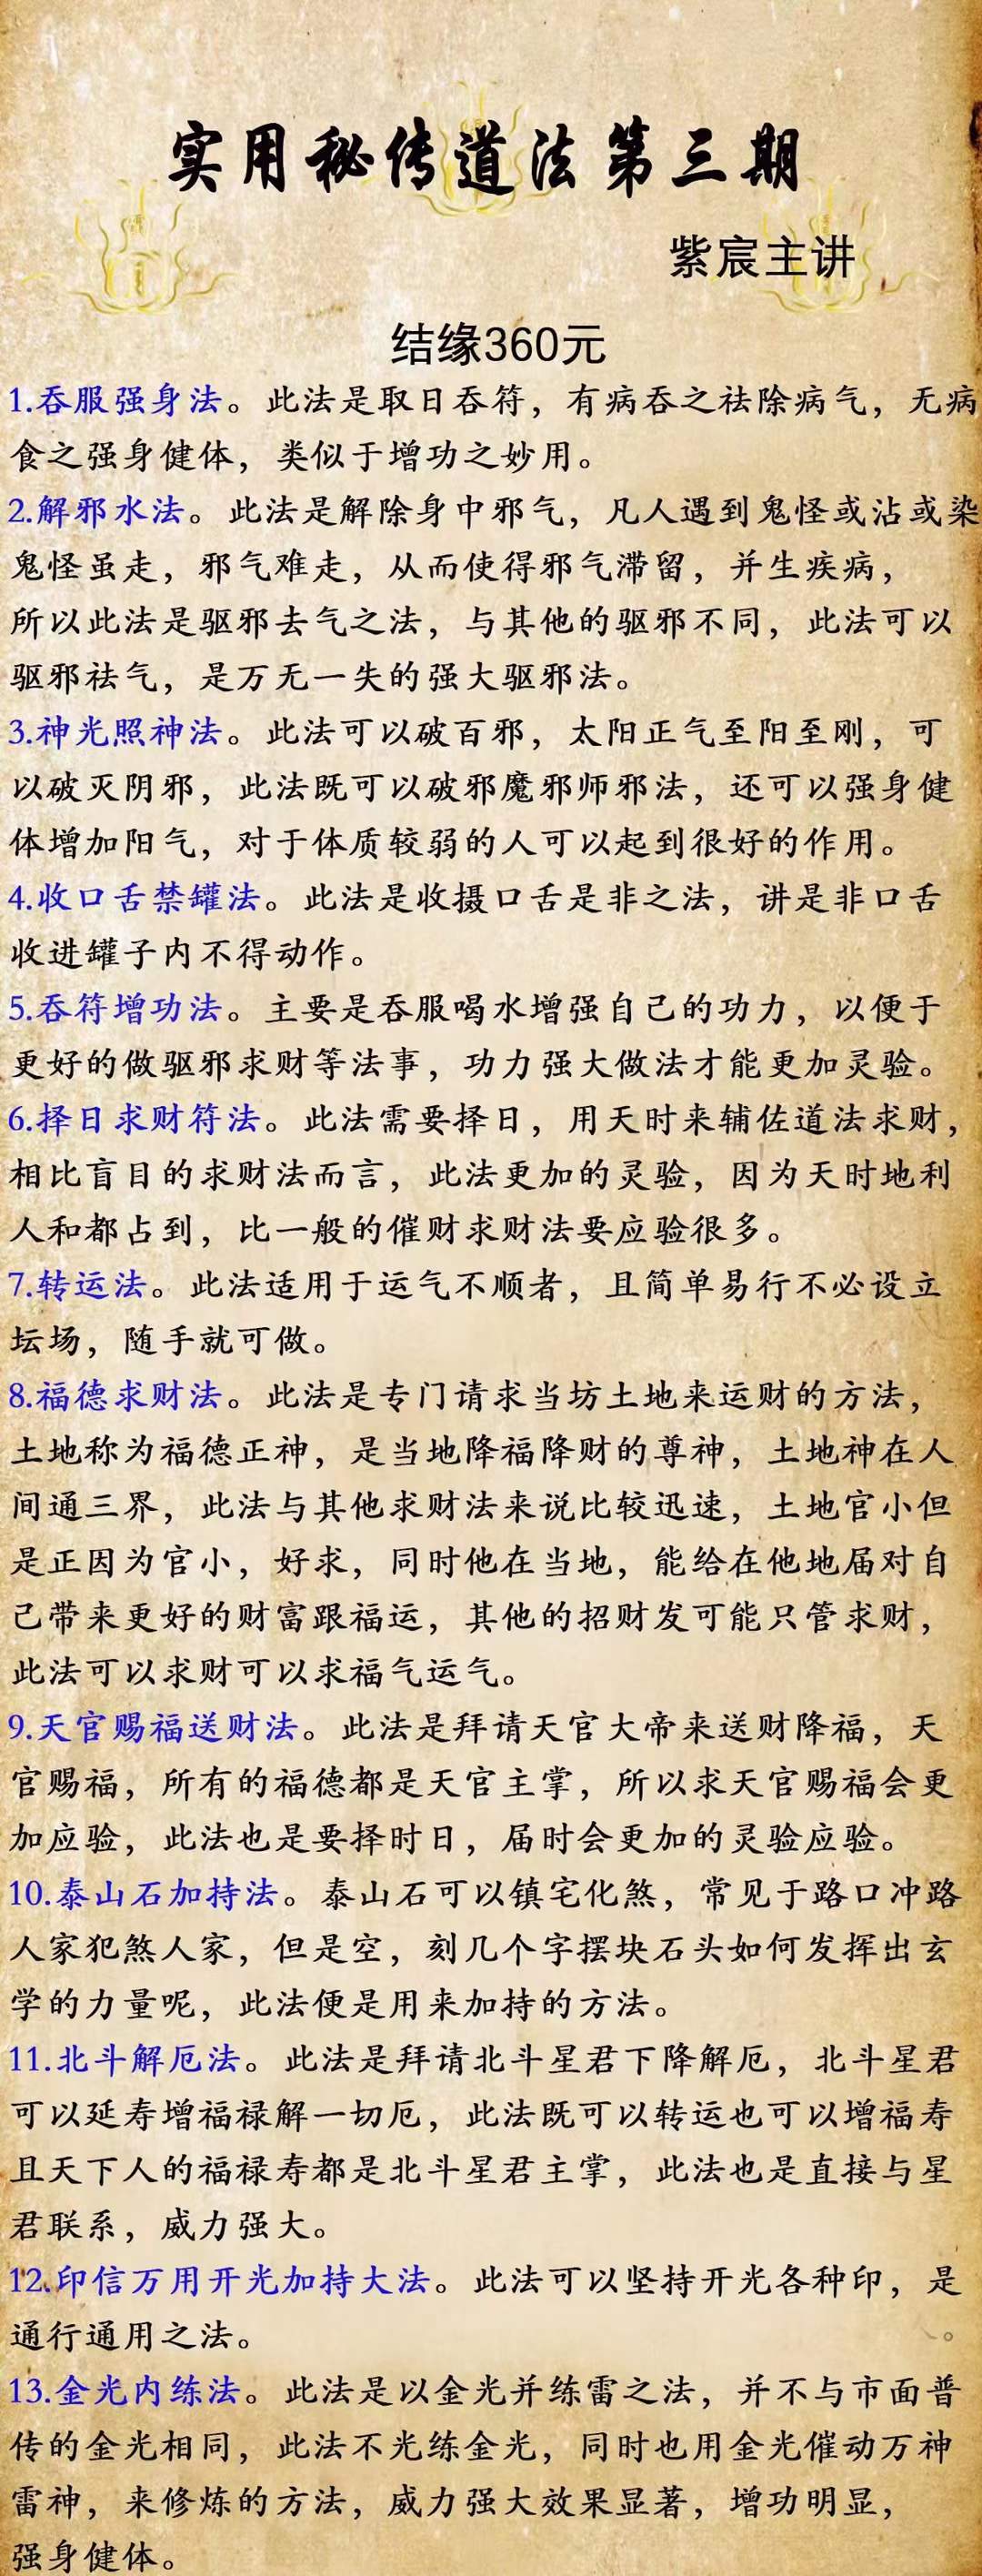 实用秘传道法第三期
紫宸主讲
结缘360元
1.吞服强身法。此法是取日吞符，有病吞之祛除病气，无病
食之强身健体，类似于增功之妙用。
2.解邪水法。此法是解除身中邪气，凡人遇到鬼怪或沾或染
鬼怪虽走，邪气难走，从而使得邪气滞留，并生疾病，
所以此法是驱邪去气之法，与其他的驱邪不同，此法可以
驱邪祛气，是万无一失的强大驱邪法。
3.神光照神法。此法可以破百邪，太阳正气至阳至刚，可
以破灭阴邪，此法既可以破邪魔邪师邪法，还可以强身健
体增加阳气，对于体质较弱的人可以起到很好的作用。
4.收口舌禁罐法。此法是收摄口舌是非之法，讲是非口舌
收进罐子内不得动作。
5.吞符增功法。主要是吞服喝水增强自己的功力，以便于
更好的做驱邪求财等法事，功力强大做法才能更加灵验。
6.择日求财符法。此法需要择日，用天时来辅佐道法求财，
相比盲目的求财法而言，此法更加的灵验，因为天时地利
人和都占到，比一般的催财求财法要应验很多。
7.转运法。此法适用于运气不顺者，且简单易行不必设立
坛场，随手就可做。
8.福德求财法。此法是专门请求当坊土地来运财的方法，
土地称为福德正神，是当地降福降财的尊神，土地神在人
间通三界，此法与其他求财法来说比较迅速，土地官小但
是正因为官小，好求，同时他在当地，能给在他地届对自
己带来更好的财富跟福运，其他的招财发可能只管求财，
此法可以求财可以求福气运气。
9.天官赐福送财法。此法是拜请天官大帝来送财降福，天
官赐福，所有的福德都是天官主掌，所以求天官赐福会更
加应验，此法也是要择时日，届时会更加的灵验应验。
10.泰山石加持法。泰山石可以镇宅化煞，常见于路口冲路
人家犯煞人家，但是空，刻几个字摆块石头如何发挥出玄
学的力量呢，此法便是用来加持的方法。
11.北斗解厄法。此法是拜请北斗星君下降解厄，北斗星君
可以延寿增福禄解一切厄，此法既可以转运也可以增福寿
且天下人的福禄寿都是北斗星君主掌，此法也是直接与星
君联系，威力强大。
12.印信万用开光加持大法。此法可以坚持开光各种印，是
通行通用之法。
13.金光内练法。此法是以金光并练雷之法，并不与市面普
传的金光相同，此法不光练金光，同时也用金光催动万神
雷神，来修炼的方法，威力强大效果显著，增功明显，
强身健体。